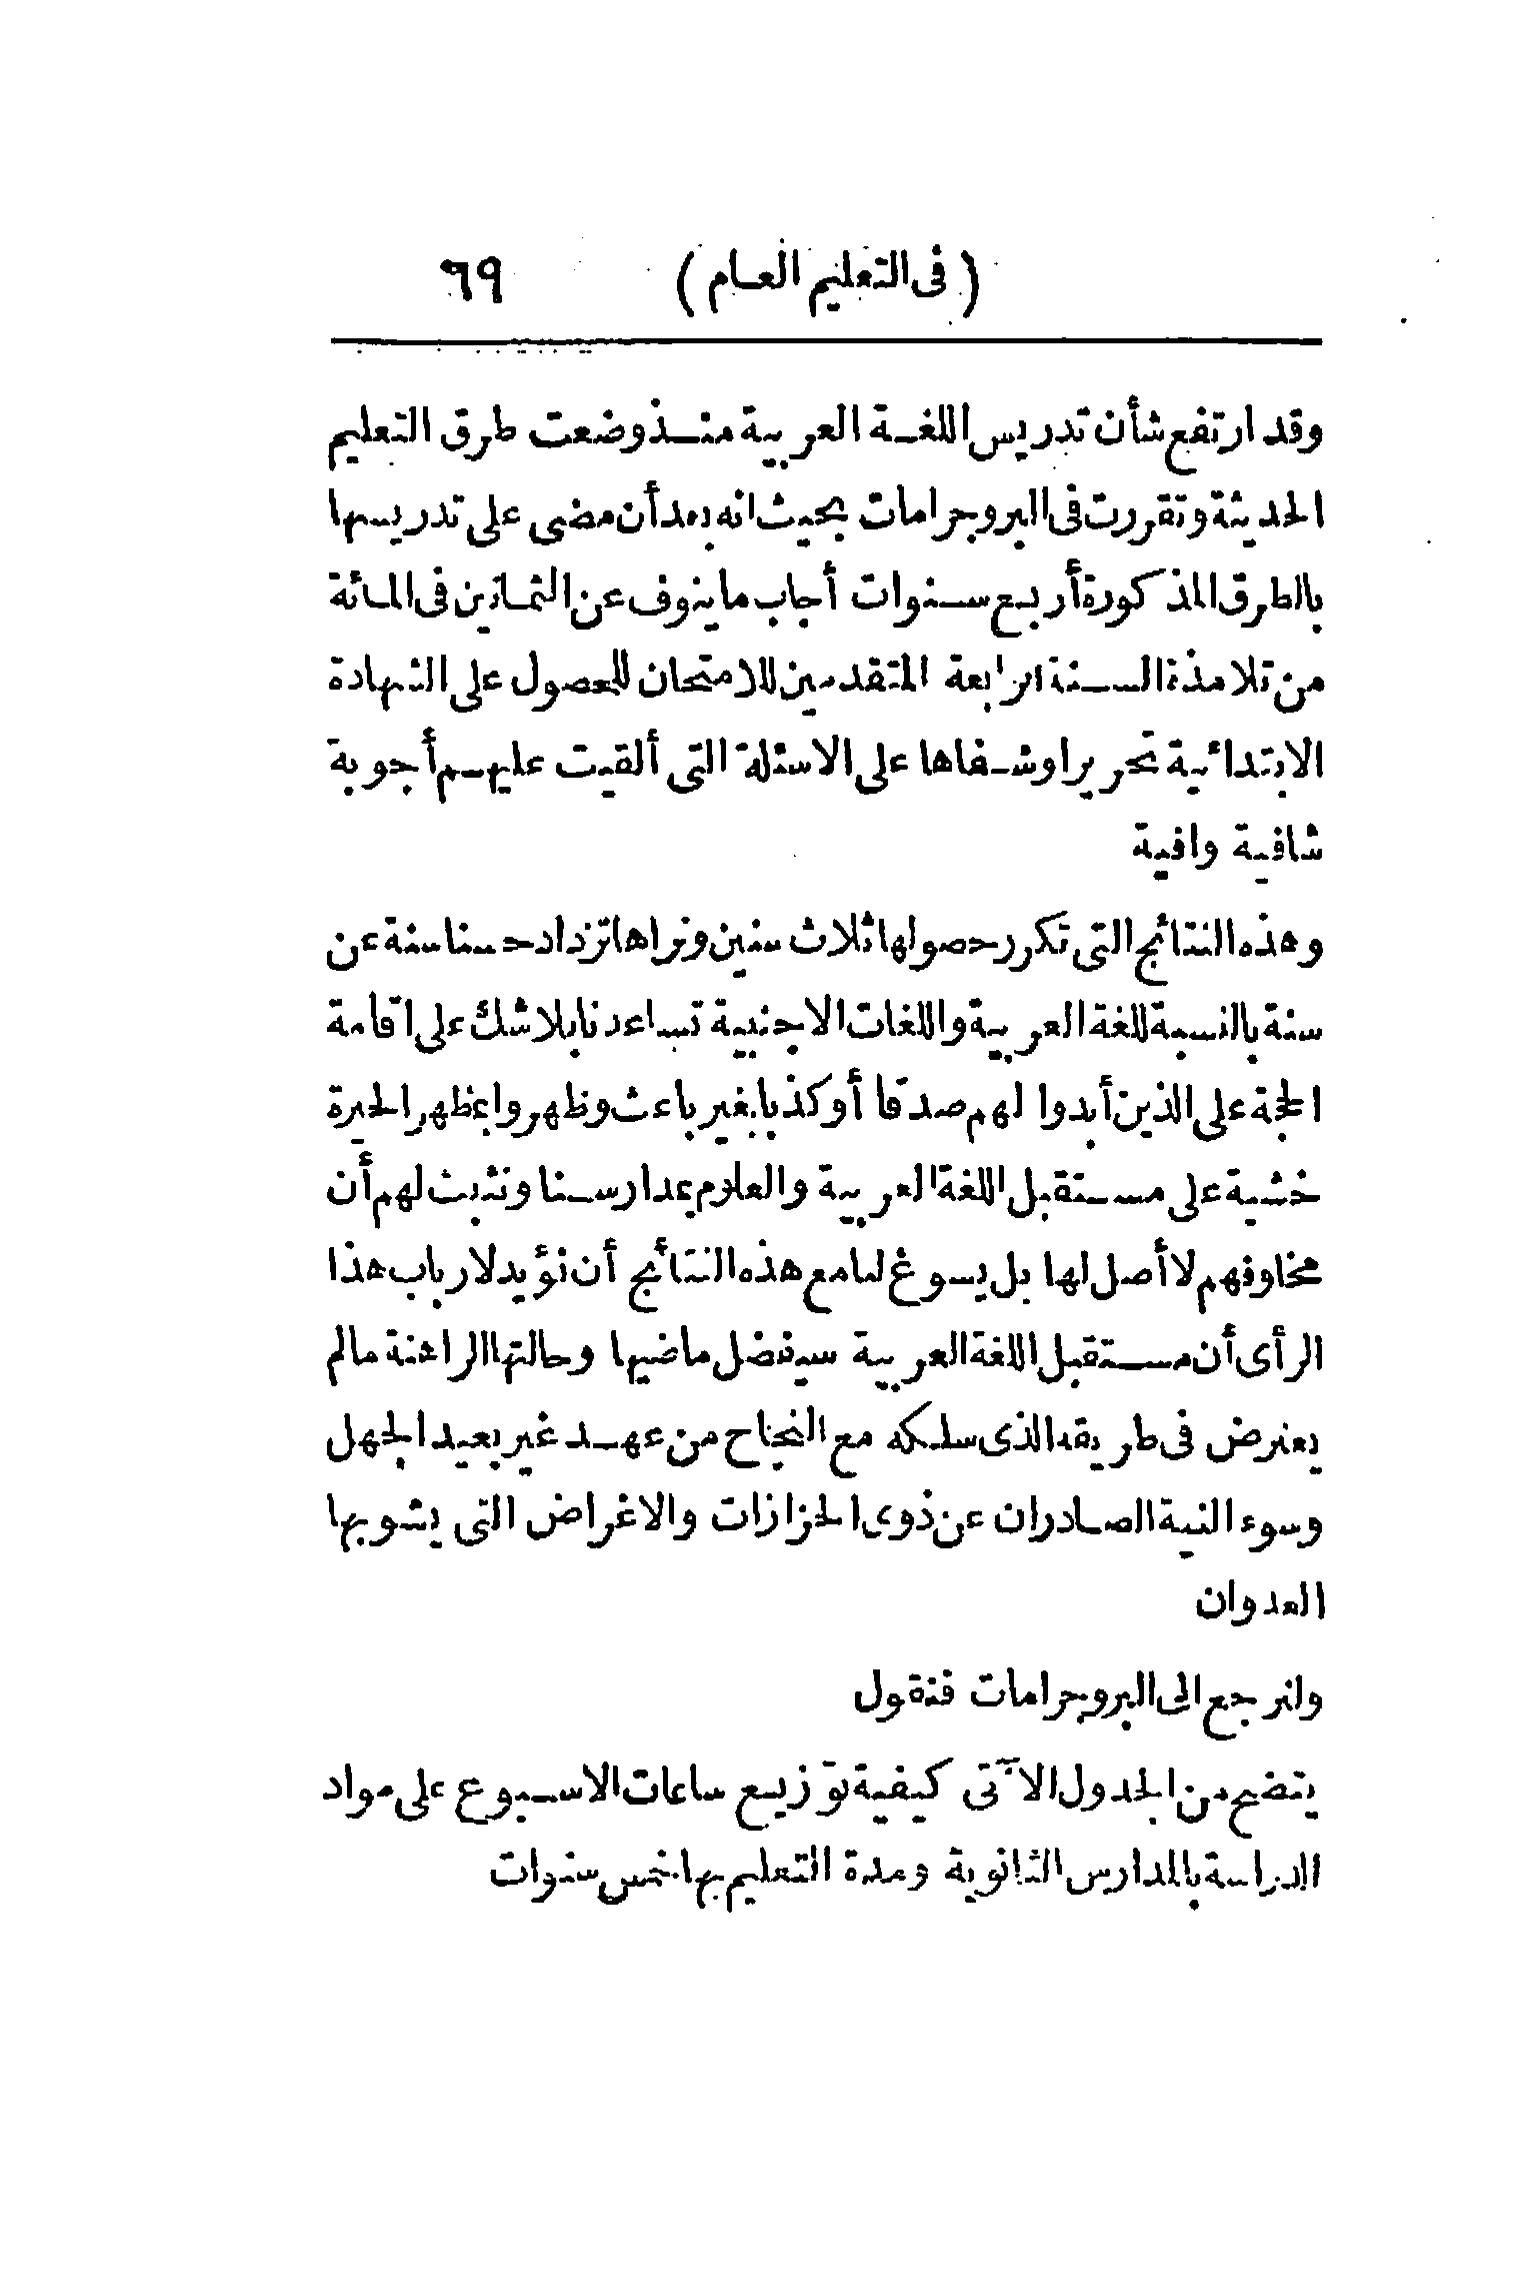 ( فى التعليم العام ) ٦٩
وقد ارتفع شأن تدريس اللغة العربية منذ وضعت طرق التعليم
الحديثة وتقررت فى البروجرامات بحيث انه بعد أن مضى على تدريسها
بالطرق المذكورة أربع سنوات أجاب ما ينوف عن الثمانين فى المائة
من تلامذة السنة الرابعة المتقدمين للامتحان للحصول على الشهادة
الابتدائية تحريرا وشفاها على الاسئلة التى ألقيت عليهم أجوبة
شافية وافية
وهذه النتائج التى تكرر حصولها ثلاث سنين ونراها تزداد حسنا سنة عن
سنة بالنسبة للغة العربية واللغات الاجنبية تساعدنا بلا شك على اقامة
الحجة على الذين أبدوا لهم صدقا أو كذبا بغير باعث وظهروا بمظهر الحيرة
خشية على مستقبل اللغة العربية والعلوم بمدارسنا ونثبت لهم أن
مخاوفهم لا أصل لها بل يسوغ لنا مع هذه النتائج أن نؤيد لارباب هذا
الرأى أن مستقبل اللغة العربية سيفضل ماضيها وحالتها الراهنة مالم
يعترض فى طريقه الذى سلكه مع النجاح من عهد غير بعيد الجهل
وسوء النية الصادران عن ذوى الحزازات والاغراض التى يشوبها
العدوان
ولنرجع الى البروجرامات فنقول
يتضح من الجدول الآتى كيفية توزيع ساعات الاسبوع على مواد
الدراسة بالمدارس الثانوية ومدة التعليم بها خمس سنوات